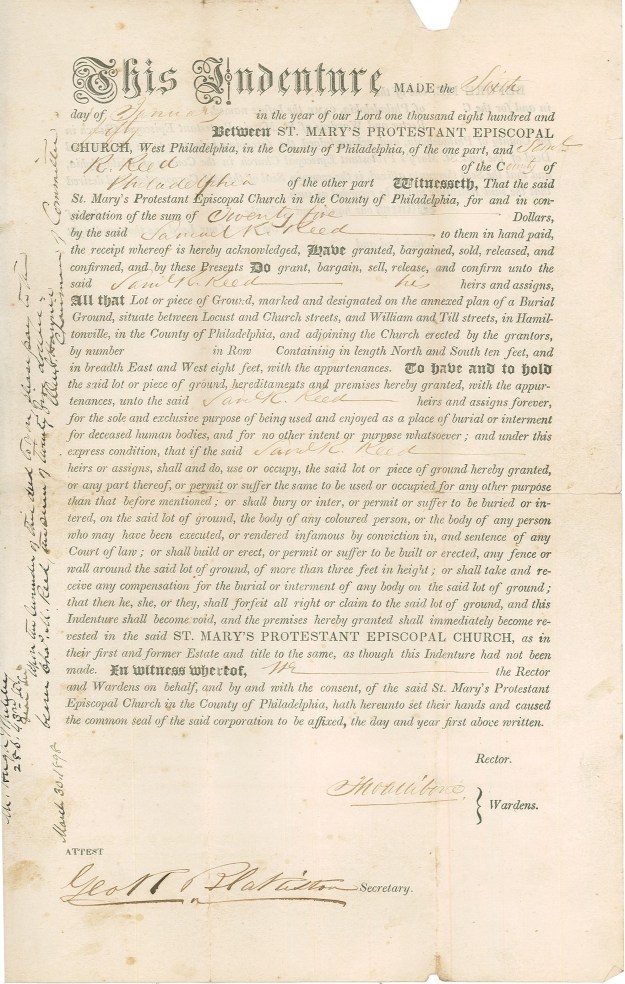 This Indenture MADE the Sixth
day of January in the year of our Lord one thousand eight hundred and
Between ST. MARY'S PROTESTANT EPISCOPAL
CHURCH, West Philadelphia, in the County of Philadelphia, of the one part, and Saml
R. Reed of the County of
Philadelphia of the other part Witnesseth, That the said
St. Mary's Protestant Episcopal Church in the County of Philadelphia, for and in con-
sideration of the sum of Twenty five Dollars,
by the said Samuel R. Reed to them in hand paid,
the receipt whereof is hereby acknowledged, Have granted, bargained, sold, released, and
confirmed, and by these Presents Do grant, bargain, sell, release, and confirm unto the
said Saml R. Reed his heirs and assigns,
All that Lot or piece of Ground, marked and designated on the annexed plan of a Burial
Ground, situate between Locust and Church streets, and William and Till streets, in Hamil-
tonville, in the County of Philadelphia, and adjoining the Church erected by the grantors,
by number in Row Containing in length North and South ten feet, and
in breadth East and West eight feet, with the appurtenances. To have and to hold
the said lot or piece of ground, hereditaments and premises hereby granted, with the appur-
tenances, unto the said Saml R. Reed heirs and assigns forever,
for the sole and exclusive purpose of being used and enjoyed as a place of burial or interment
for deceased human bodies, and for no other intent or purpose whatsoever; and under this
express condition, that if the said Saml R. Reed
heirs or assigns, shall and do, use or occupy, the said lot or piece of ground hereby granted,
or any part thereof, or permit or suffer the same to be used or occupied for any other purpose
than that before mentioned; or shall bury or inter, or permit or suffer to be buried or in-
tered, on the said lot of ground, the body of any coloured person, or the body of any person
who may have been executed, or rendered infamous by conviction in, and sentence of any
Court of law; or shall build or erect, or permit or suffer to be built or erected, any fence or
wall around the said lot of ground, of more than three feet in height; or shall take and re-
ceive any compensation for the burial or interment of any body on the said lot of ground;
that then he, she, or they, shall forfeit all right or claim to the said lot of ground, and this
Indenture shall become void, and the premises hereby granted shall immediately become re-
vested in the said ST. MARY'S PROTESTANT EPISCOPAL CHURCH, as in
their first and former Estate and title to the same, as though this Indenture had not been
made. In witness whereof, We the Rector
and Wardens on behalf, and by and with the consent, of the said St. Mary's Protestant
Episcopal Church in the County of Philadelphia, hath hereunto set their hands and caused
the common seal of the said corporation to be affixed, the day and year first above written.
Rector.
Wardens.
ATTEST
Geo Blakiston Secretary.
Upon the surrender of this deed
Reed the sum of twenty five
Chairman of Committee
March 30 1898